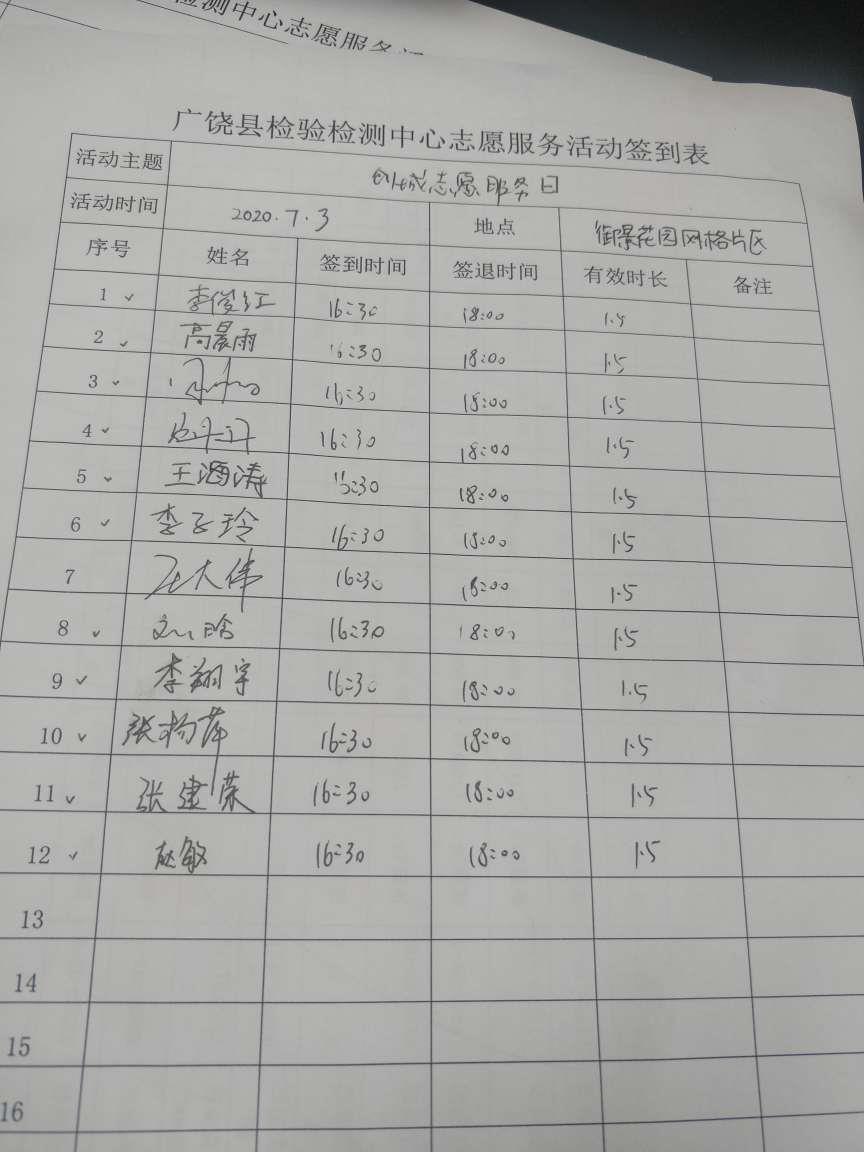 检测中心志愿服务活
广饶县检验检测中心志愿服务活动签到表
活动主题 创城志愿服务日
活动时间 2020.7.3 地点 御景花园网格片区
序号 姓名 签到时间 签退时间 有效时长 备注
1 ✓ 李俊红 16:30 18:00 1.5
2 ✓ 高晨雨 16:30 18:00 1.5
3 ✓ 16:30 18:00 1.5
4 ✓ 16:30 18:00 1.5
5 ✓ 王海涛 16:30 18:00 1.5
6 ✓ 李玉玲 16:30 18:00 1.5
7 大伟 16:30 18:00 1.5
8 ✓ 刘晗 16:30 18:00 1.5
9 ✓ 李翔宇 16:30 18:00 1.5
10 ✓ 张杨萍 16:30 18:00 1.5
11 ✓ 张建荣 16:30 18:00 1.5
12 ✓ 赵敏 16:30 18:00 1.5
13
14
15
16